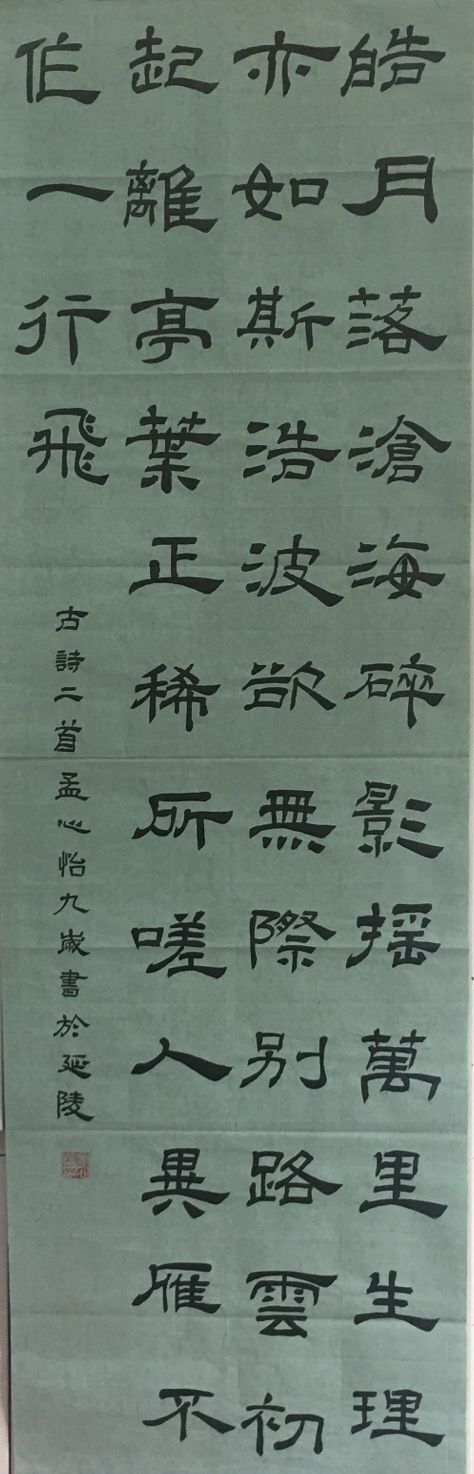 皓月落滄海碎影揺萬里生理
亦如斯浩波欲無際别路雲初
起離亭葉正稀所嗟人異雁不
作一行飛
古詩二首孟心怡九歲書於延陵